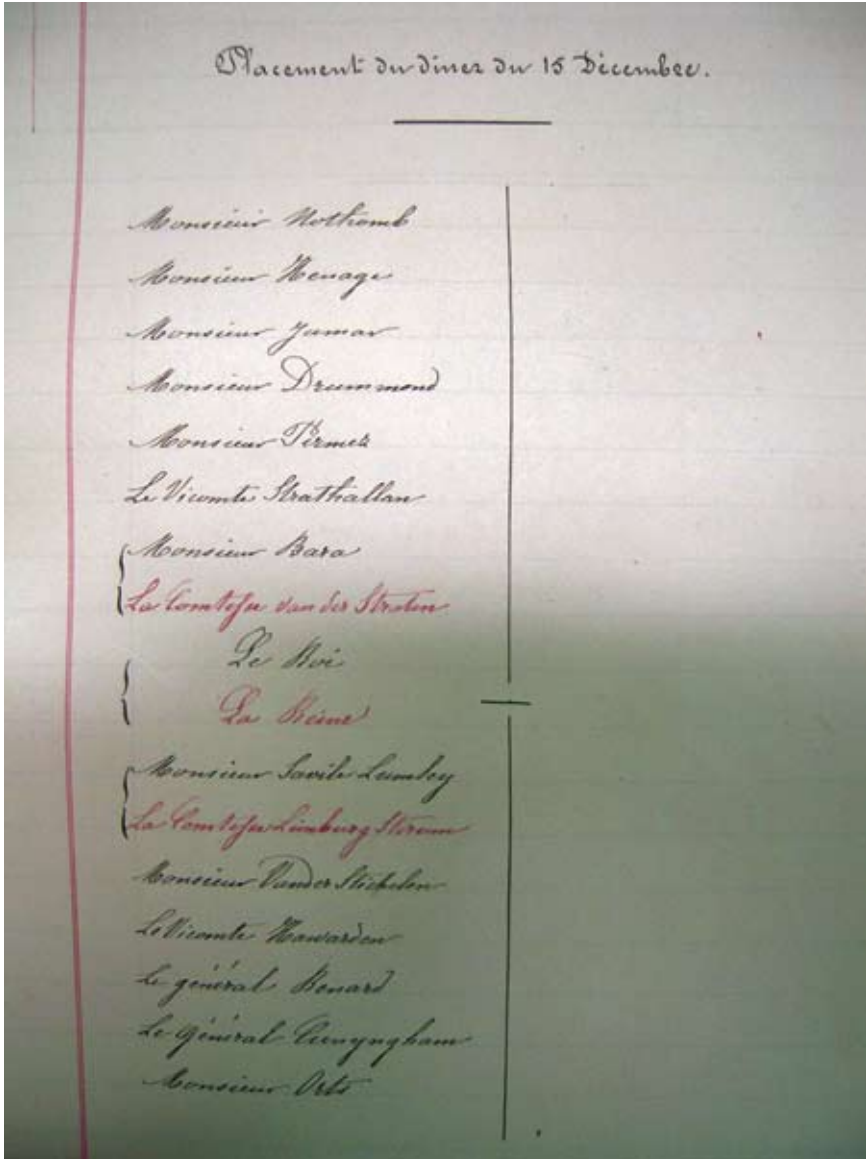 Placement du diner du 15 Décembre.
Monsieur Nothomb
Monsieur Henage
Monsieur Jamar
Monsieur Drummond
Monsieur Pirmez
Le Vicomte Strathallan
Monsieur Bara
La Comtesse van der Straten
Le Roi
La Reine
Monsieur Savile Lumley
La Comtesse Limburg Stirum
Monsieur Vander Stichelen
Le Vicomte Hawarden
Le général Renard
Le général Cunyngham
Monsieur Orts